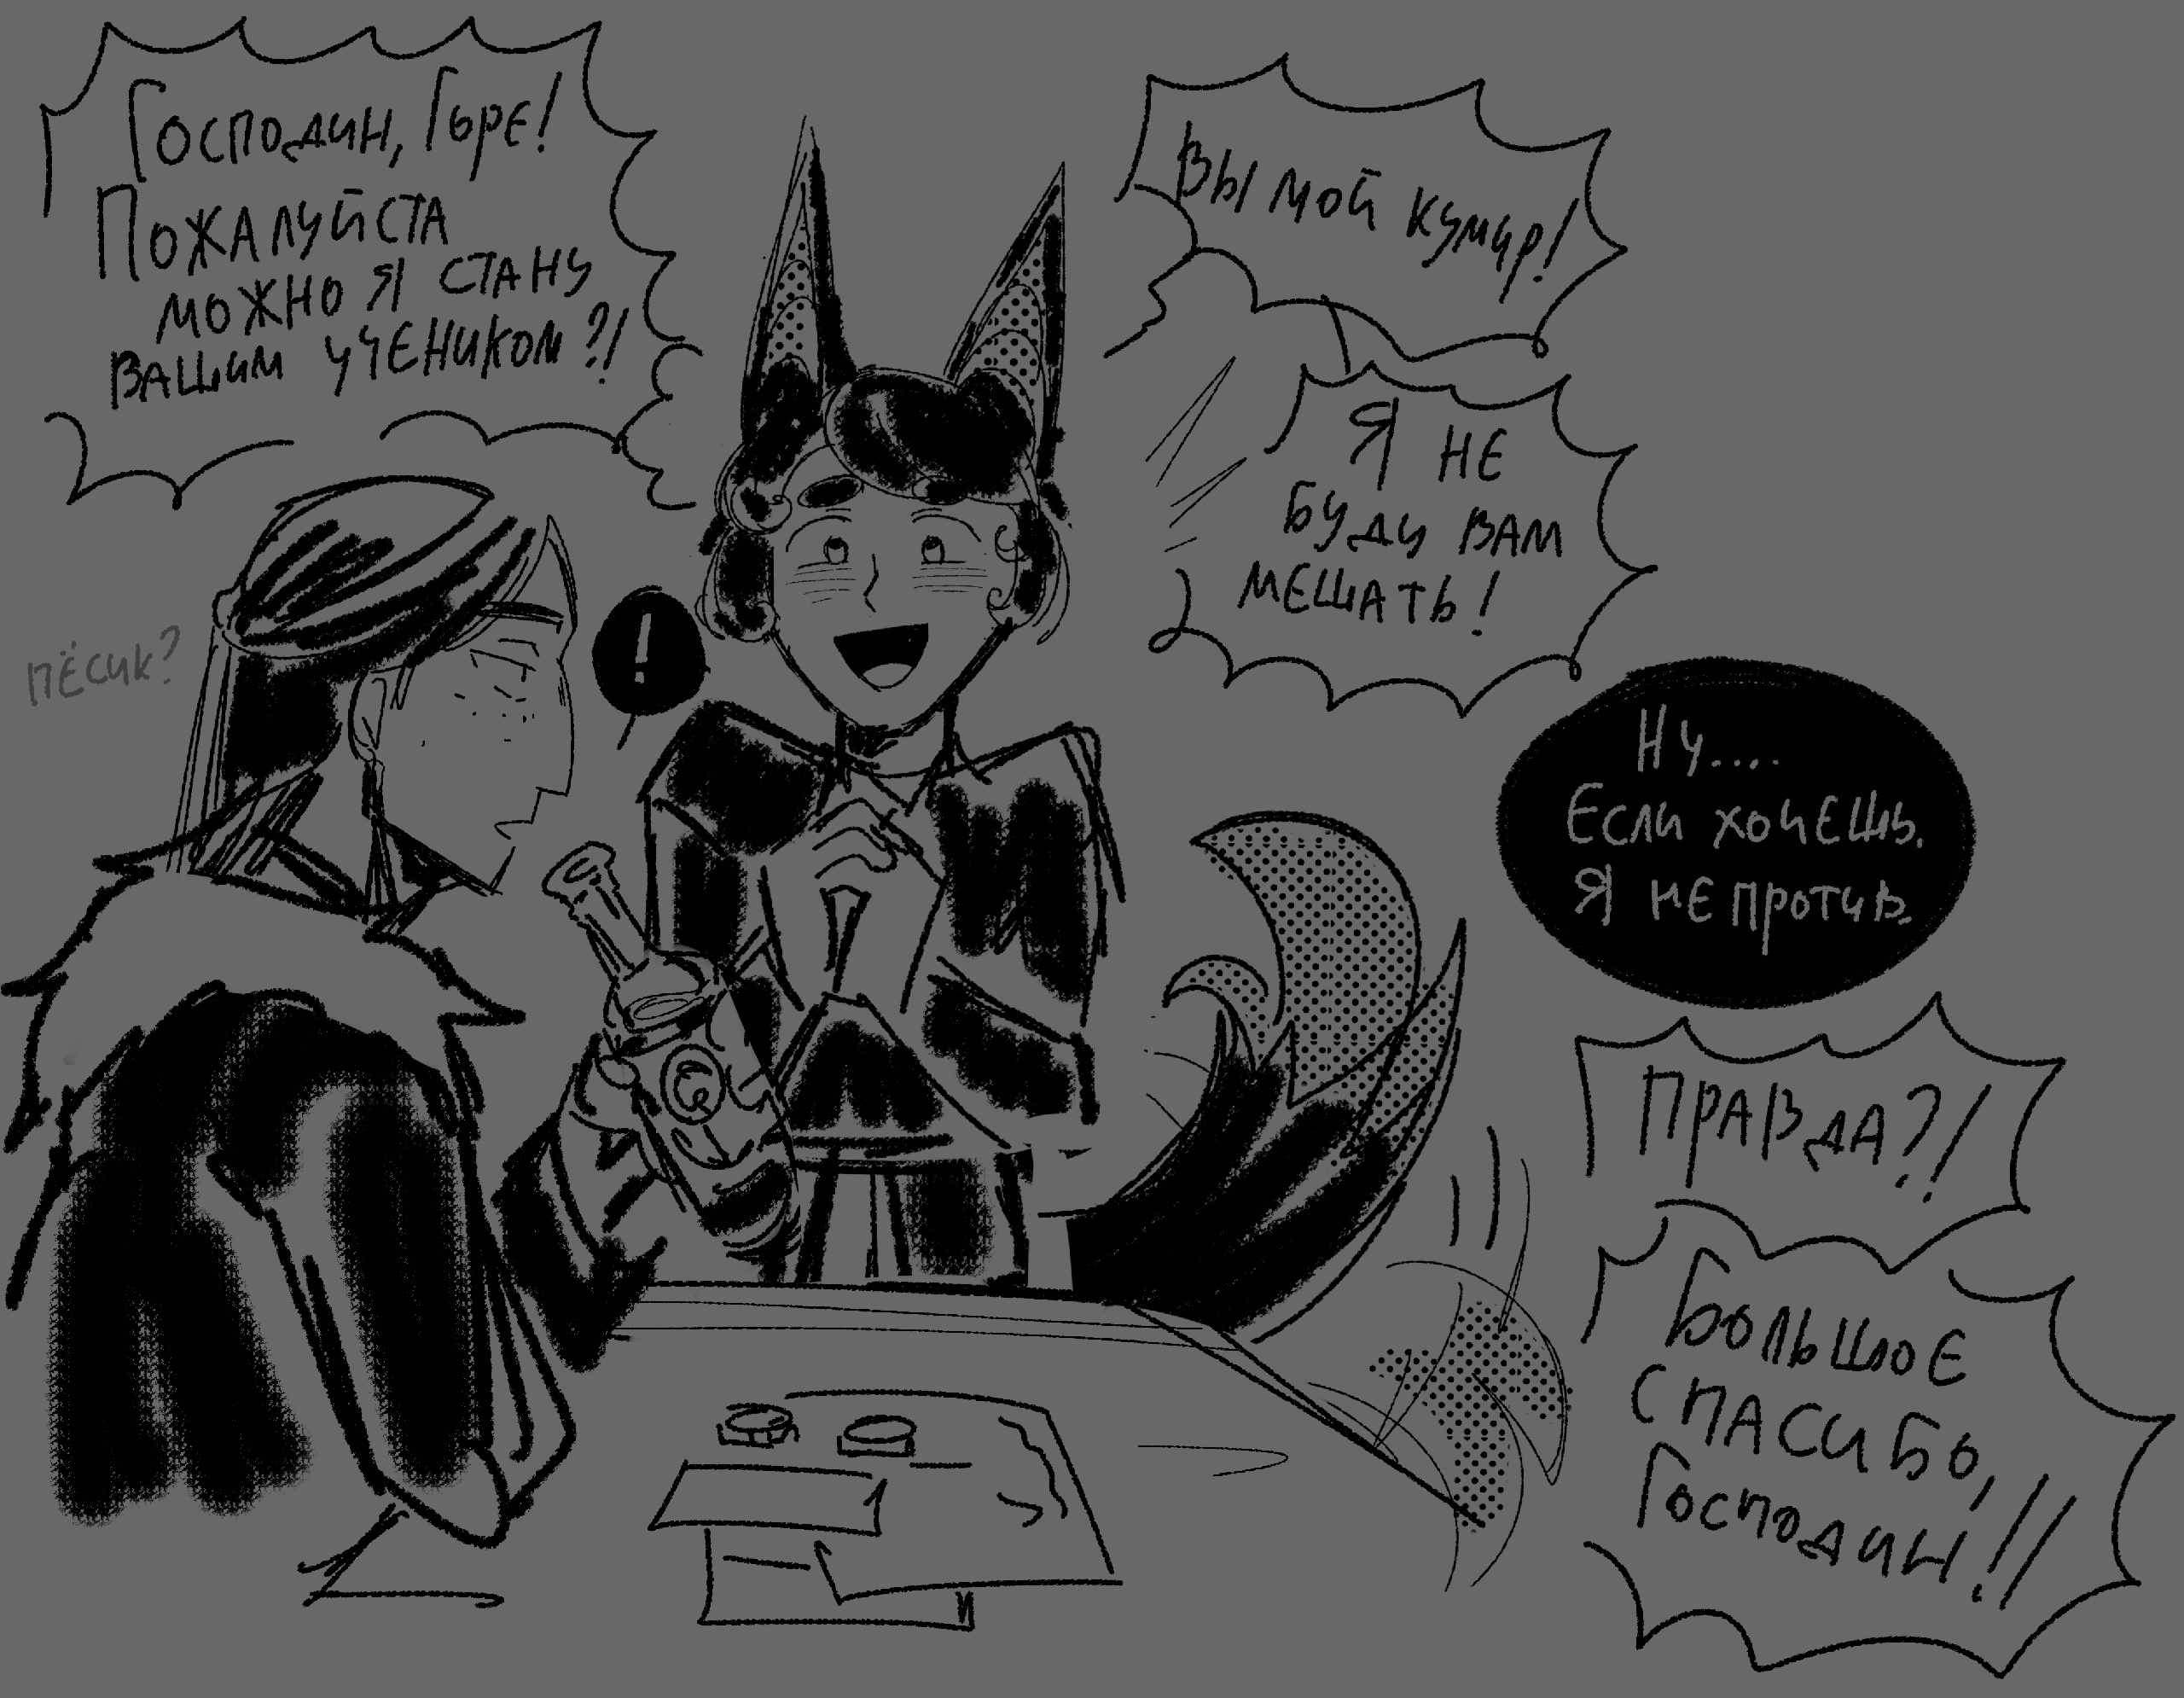 Господин, Гёре!
Пожалуйста
можно я стану
вашим учеником?!
Вы мой кумир!
Я не
буду вам
мешать!
пёсик?
!
Ну....
Если хочешь.
Я не против.
Правда?!
Большое
спасибо,
Господин!!!